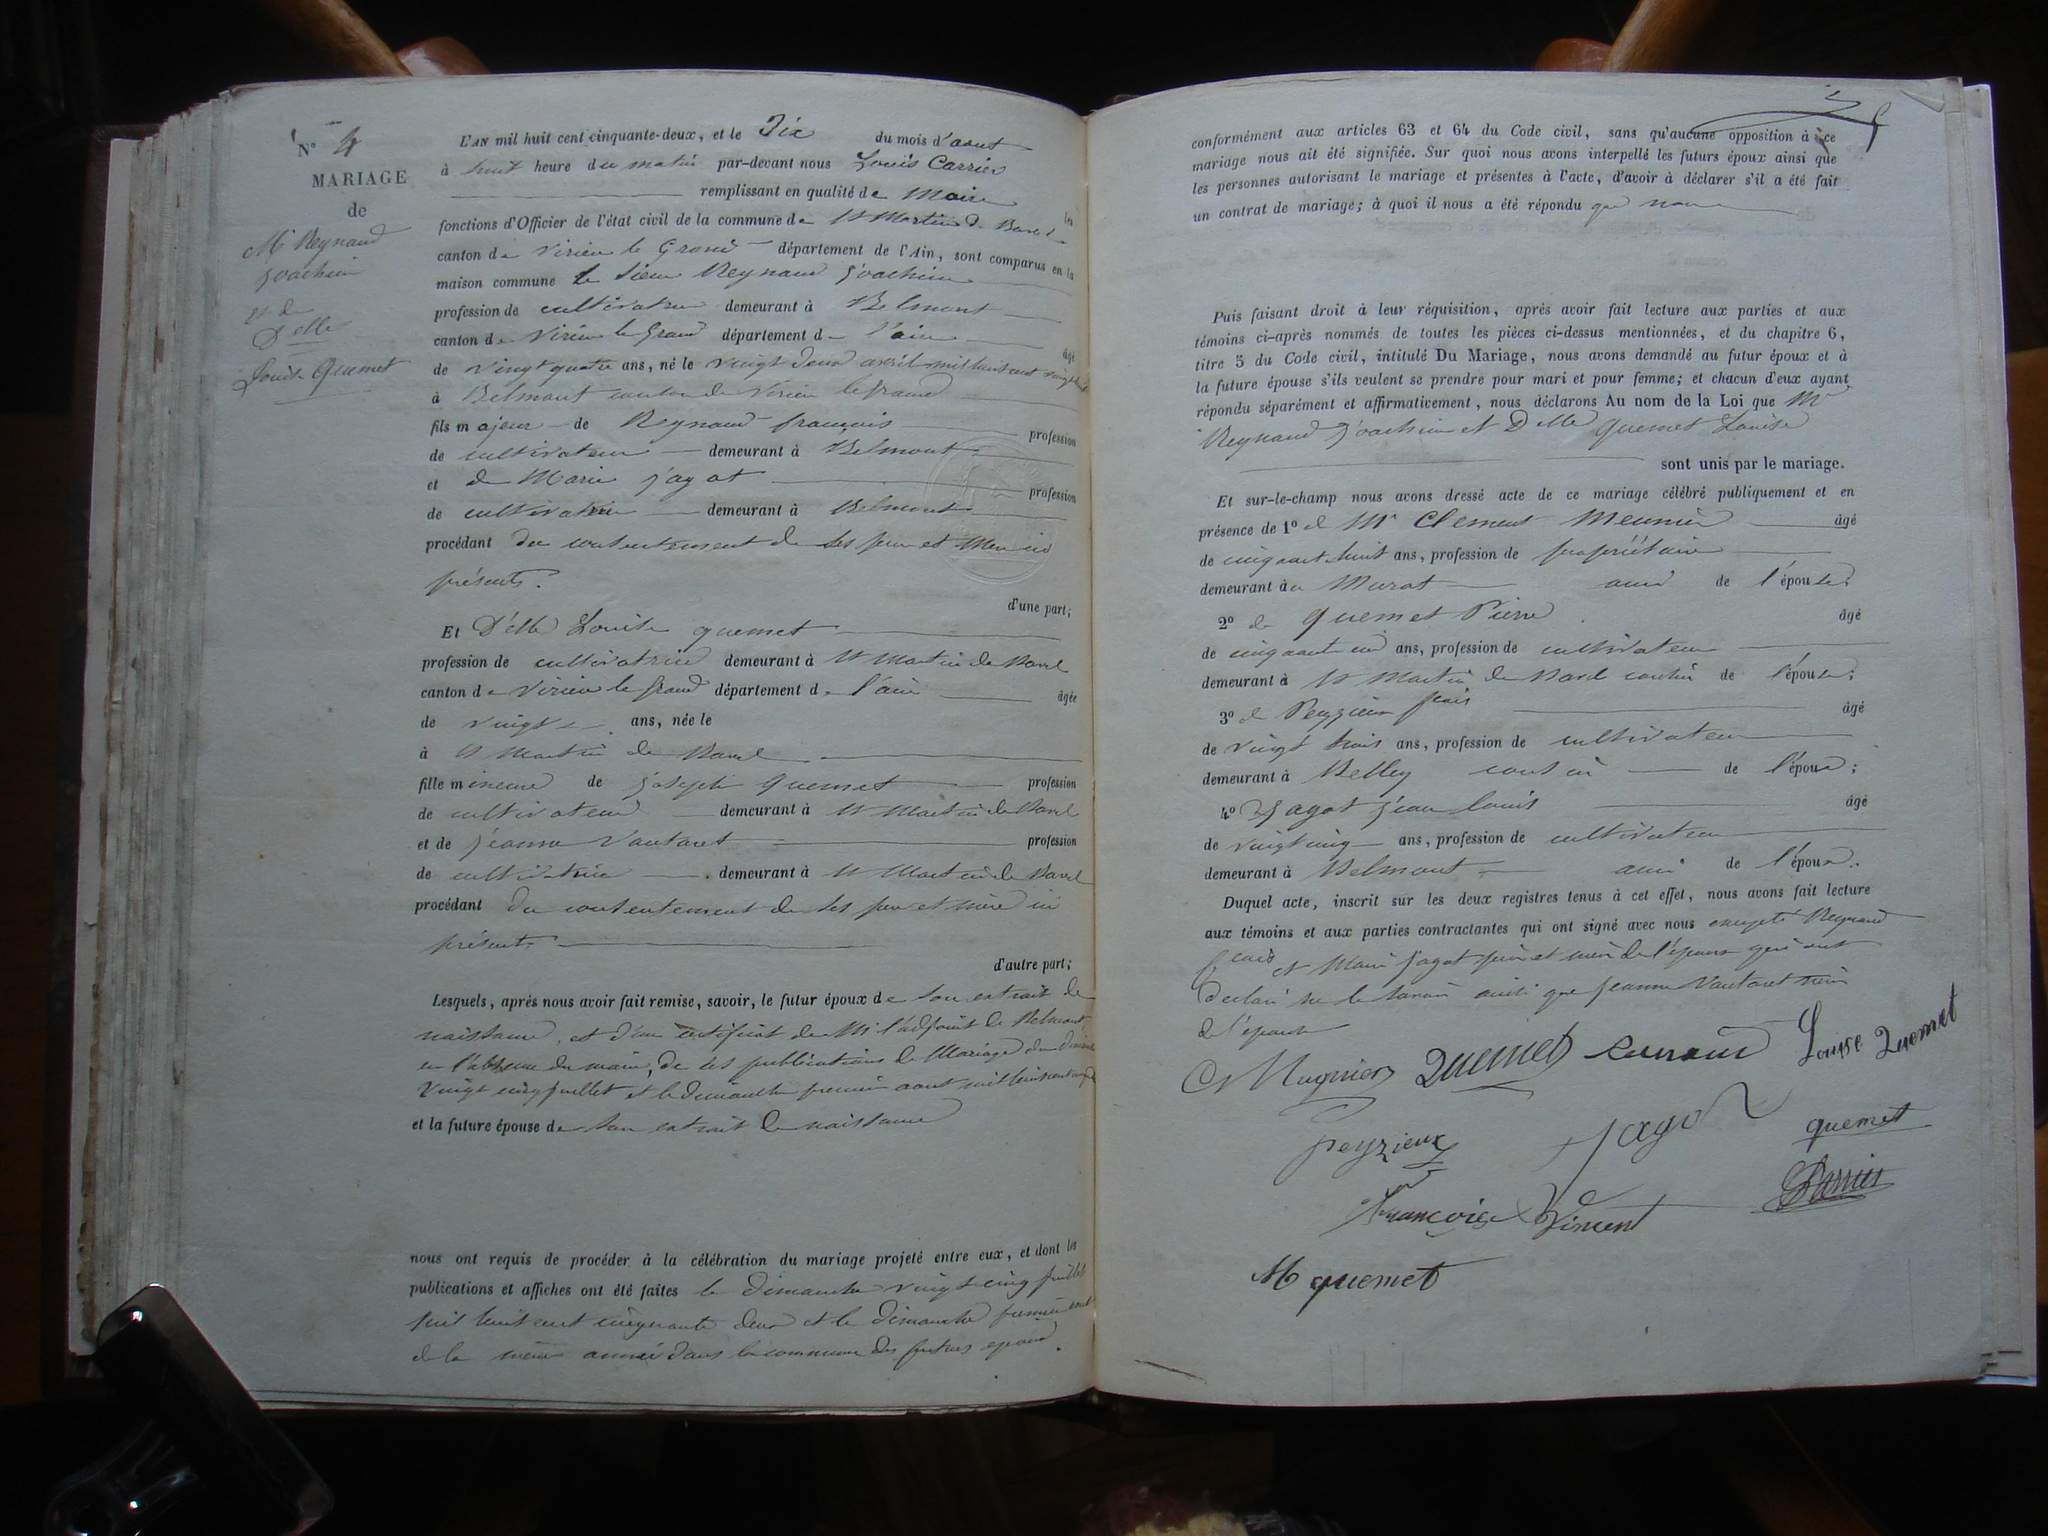 N° 4
MARIAGE
de
Mr Reynaud
joachim
et de
Delle
Louise Quemet
L'AN mil huit cent cinquante-deux, et le Dix du mois d'aout
à huit heure du matin par-devant nous Louis Carrier
remplissant en qualité de Maire les
fonctions d'Officier de l'état civil de la commune de St Martin de Bavel
canton de Virieu le Grand département de l'Ain, sont comparus en la
maison commune le sieur Reynaud joachim
profession de cultivateur demeurant à Belmont
canton de Virieu le Grand département de l'ain âgé
de vingt quatre ans, né le vingt deux avril mil huit cent vingt huit
à Belmont canton de Virieu le grand
fils majeur de Reynaud françois profession
de cultivateur demeurant à Belmont
et de Marie jagot profession
de cultivatrice demeurant à Belmont
procédant du consentement de ses père et Mère ici
présents.
d'une part;
Et Delle Louise quemet
profession de cultivatrice demeurant à St Martin de Bavel
canton de Virieu le grand département de l'ain âgée
de vingt ans, née le
à St Martin de Bavel
fille mineure de joseph quemet profession
de cultivateur demeurant à St Martin de Bavel
et de jeanne Vautaret profession
de cultivatrice demeurant à St Martin de Bavel
procédant du consentement de ses père et mère ici
présents
d'autre part;
Lesquels, après nous avoir fait remise, savoir, le futur époux de son extrait de
naissance, et d'un certificat de Mr l'adjoint de Belmont,
en l'absence du maire, de les publications de Mariage du dimanche
vingt cinq juillet et le dimanche premier aout mil huit cent
et la future épouse de son extrait de naissance
nous ont requis de procéder à la célébration du mariage projeté entre eux, et dont les
publications et affiches ont été faites le dimanche vingt cinq juillet
mil huit cent cinquante deux et le dimanche premier aout
de la même année dans la commune des futurs epoux.
conformément aux articles 63 et 64 du Code civil, sans qu'aucune opposition à ce
mariage nous ait été signifiée. Sur quoi nous avons interpellé les futurs époux ainsi que
les personnes autorisant le mariage et présentes à l'acte, d'avoir à déclarer s'il a été fait
un contrat de mariage; à quoi il nous a été répondu que non
Puis faisant droit à leur réquisition, après avoir fait lecture aux parties et aux
témoins ci-après nommés de toutes les pièces ci-dessus mentionnées, et du chapitre 6,
titre 5 du Code civil, intitulé Du Mariage, nous avons demandé au futur époux et à
la future épouse s'ils veulent se prendre pour mari et pour femme; et chacun d'eux ayant
répondu séparément et affirmativement, nous déclarons Au nom de la Loi que Mr
Reynaud joachim et Delle quemet Louise
sont unis par le mariage.
Et sur-le-champ nous avons dressé acte de ce mariage célébré publiquement et en
présence de 1° de Mr Clement Meunier âgé
de cinquante huit ans, profession de propriétaire
demeurant à Murat ami de l'épouse;
2° de quemet Pierre âgé
de cinquante un ans, profession de cultivateur
demeurant à St Martin de Bavel cousin de l'épouse;
3° de Peyzieux frais âgé
de vingt trois ans, profession de cultivateur
demeurant à Belley cousin de l'époux;
4° Jagot jean louis âgé
de vingt cinq ans, profession de cultivateur
demeurant à Belmont ami de l'époux.
Duquel acte, inscrit sur les deux registres tenus à cet effet, nous avons fait lecture
aux témoins et aux parties contractantes qui ont signé avec nous excepté Reynaud
fcois et Marie jagot père et mère de l'époux qui ont
declaré ne le savoir ainsi que jeanne Vautaret mère
de l'épouse
C Mugnier QUEMET Renaud Louise Quemet
peyzieux jagot quemet
françoise Vincent Carrier
M quemet